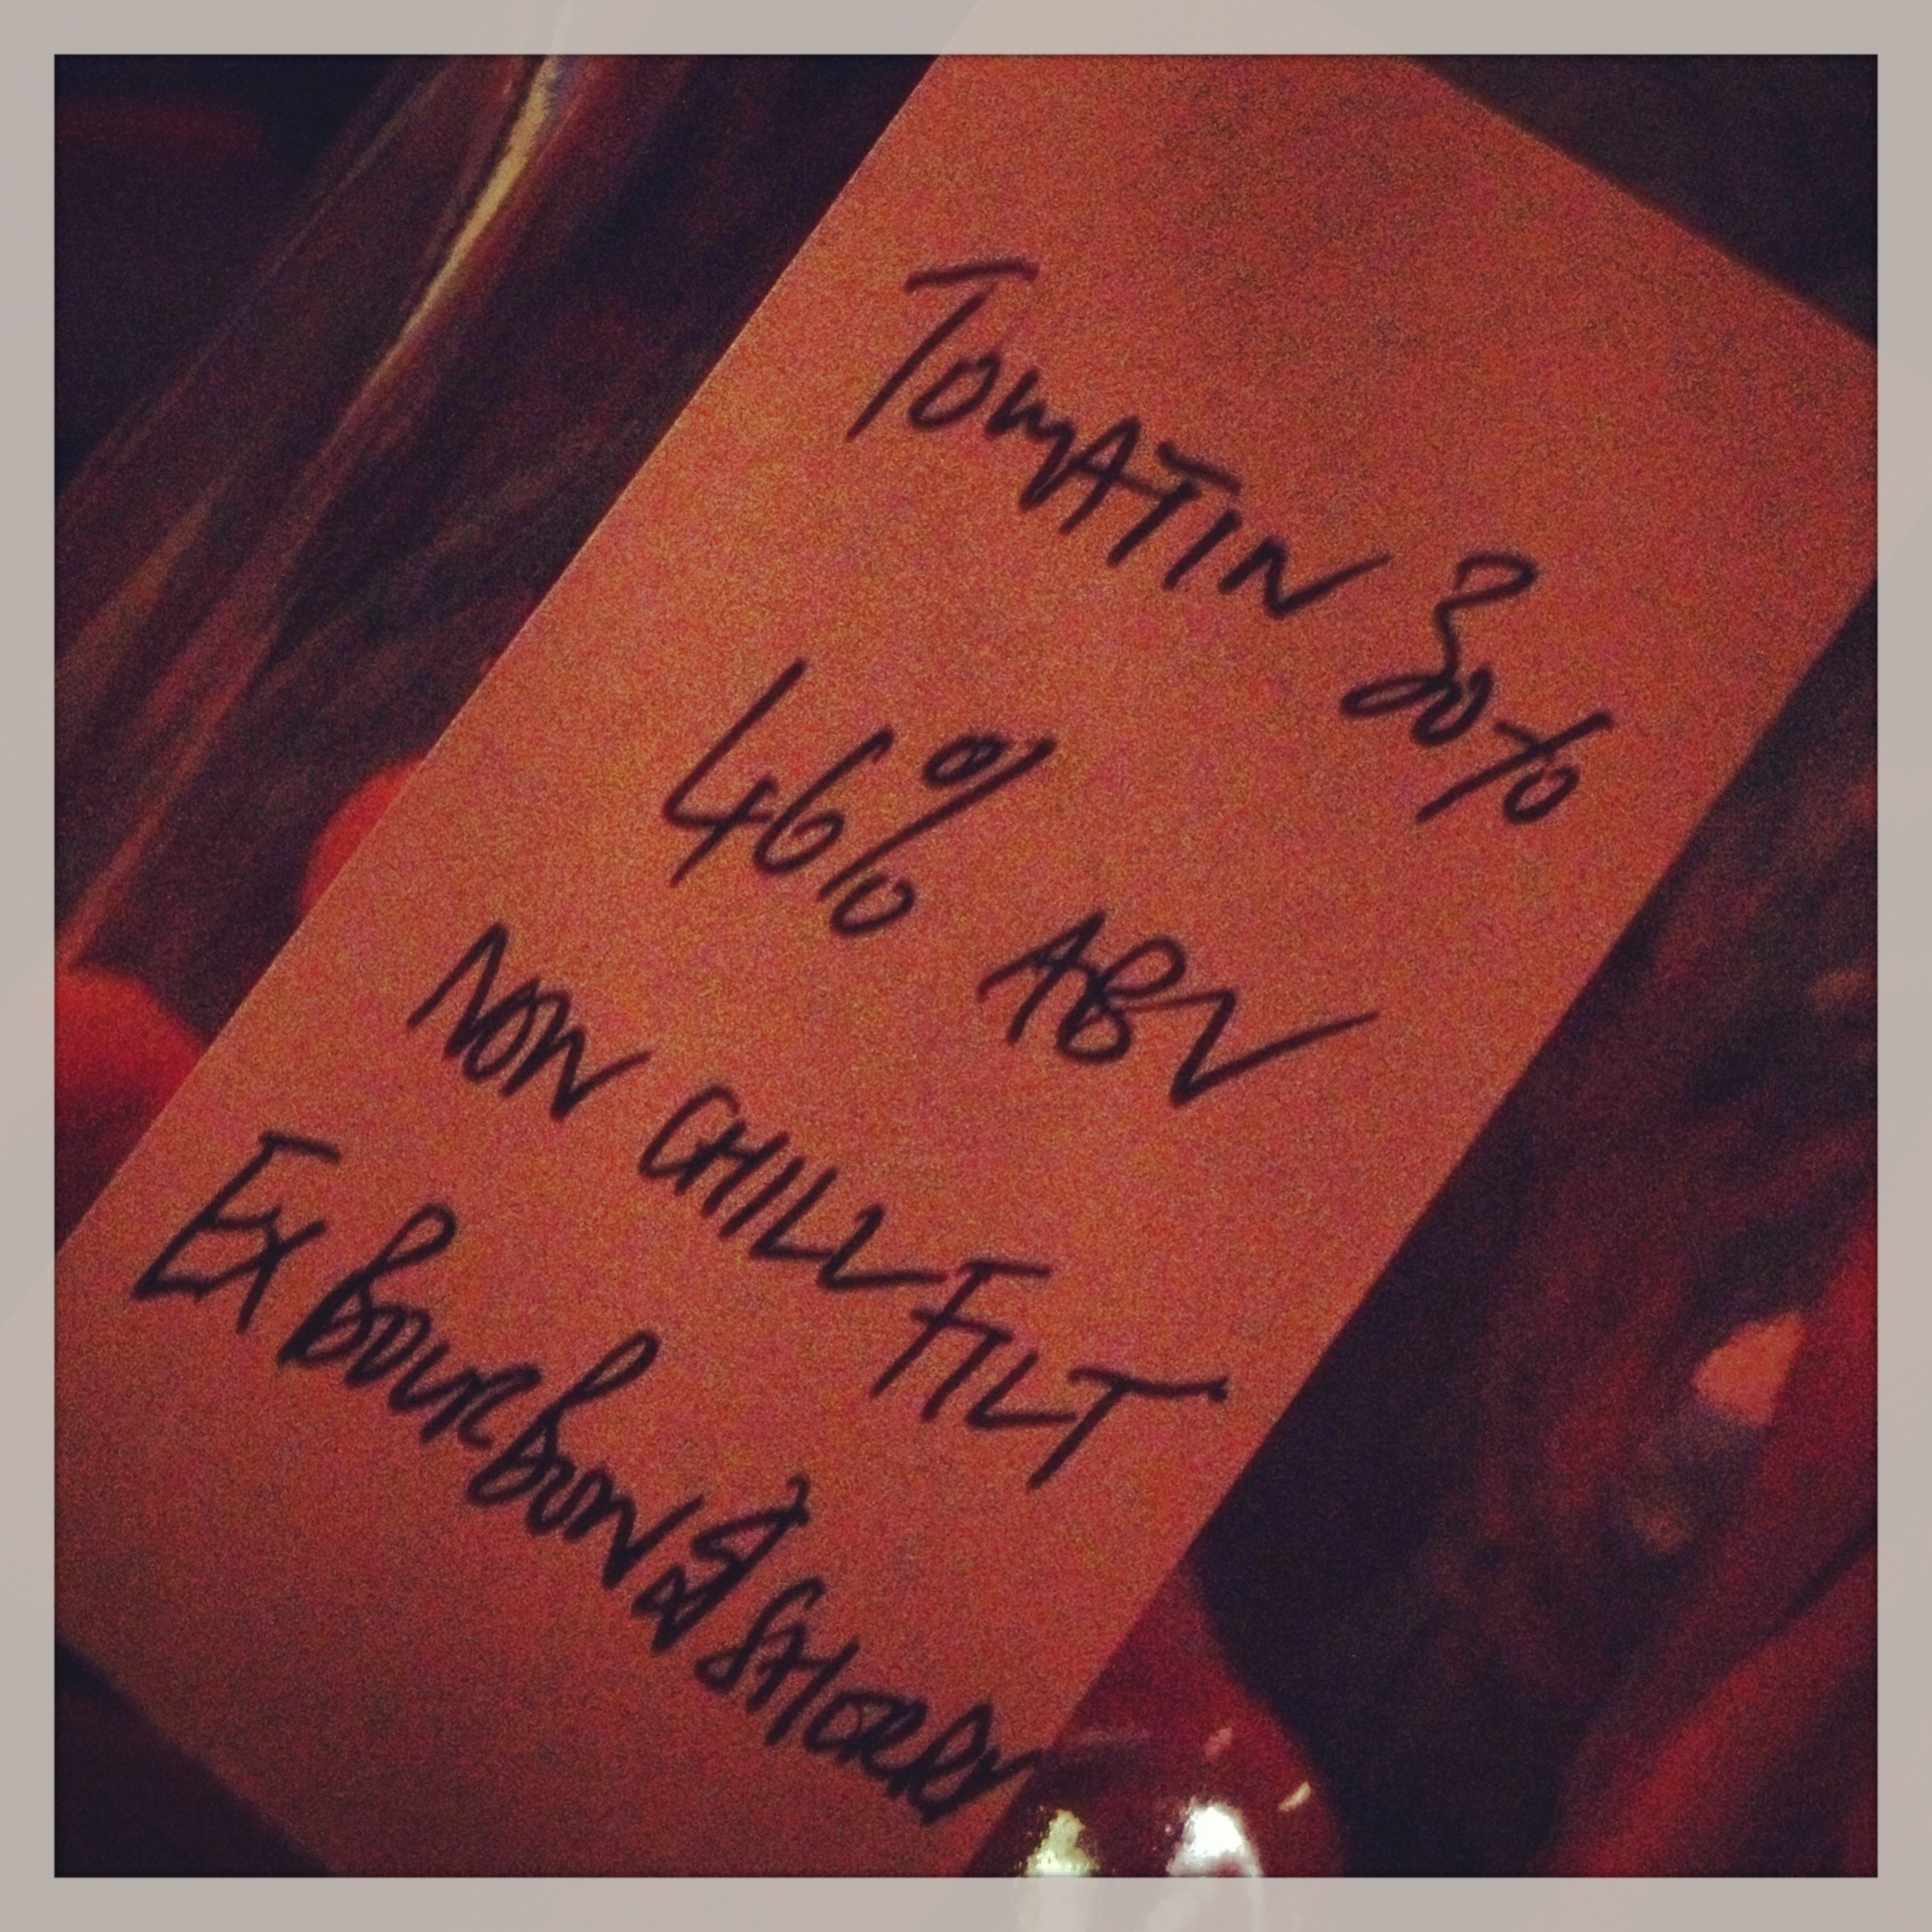 TOMATIN 30%
46% ABV
NON CHILL FILT
EX BOURBON & SHERRY